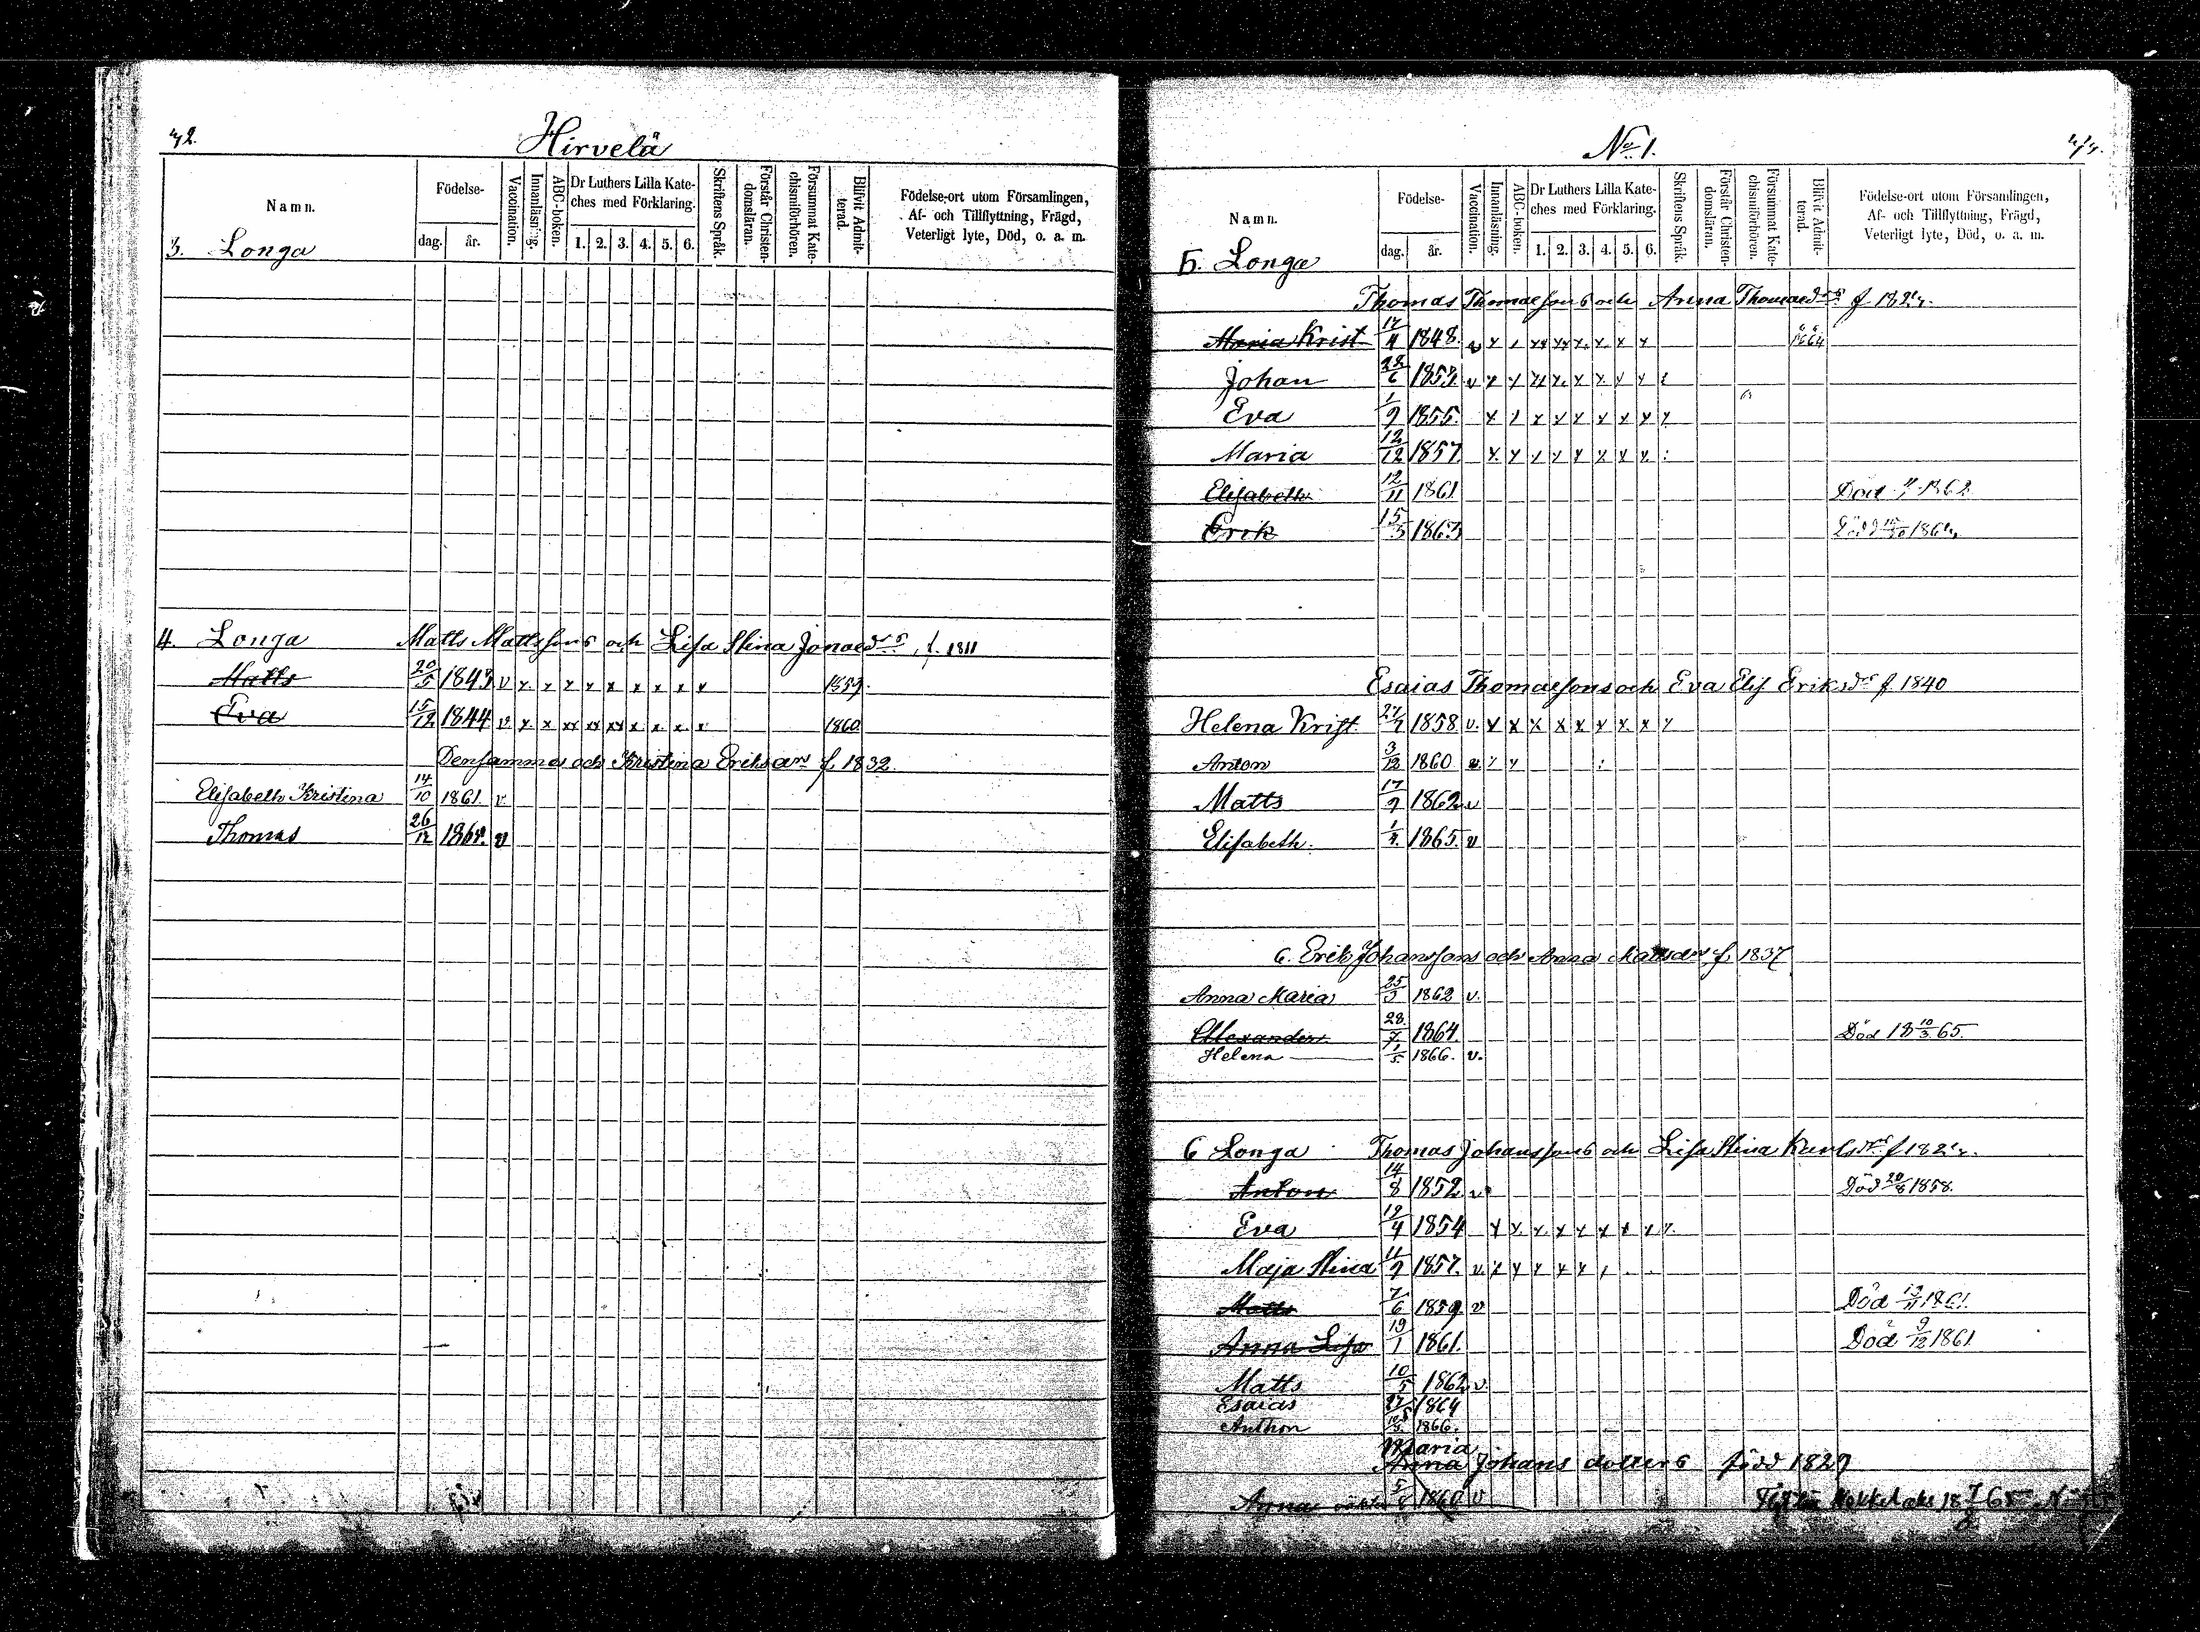 42.
Hirvelä
Namn.
Födelse-
dag. år.
Vaccination.
Innanläsning.
ABC-boken.
Dr Luthers Lilla Kate-
ches med Förklaring.
1. 2. 3. 4. 5. 6.
Skriftens Språk.
Förstår Christen-
domsläran.
Försummat Kate-
chismiförhören.
Blifvit Admit-
terad.
Födelse-ort utom Församlingen,
Af- och Tillflyttning, Frägd,
Veterligt lyte, Död, o. a. m.
3. Longa
4. Longa Matts Mattssons och Lisa Stina Jonaedrs, f. 1811
Matts 20/5 1843 v x x x x x x x x x 1859.
Eva 15/12 1844 v x x xx xx xx x x x x 1860
Densammes och Kristina Eriksdrs f. 1832.
Elisabeth Kristina 14/10 1861. v
Thomas 26/12 v
No 1.
Namn.
Födelse-
dag. år.
Vaccination.
Innanläsning.
ABC-boken.
Dr Luthers Lilla Kate-
ches med Förklaring.
1. 2. 3. 4. 5. 6.
Skriftens Språk.
Förstår Christen-
domsläran.
Försummat Kate-
chismiförhören.
Blifvit Admit-
terad.
Födelse-ort utom Församlingen,
Af- och Tillflyttning, Frägd,
Veterligt lyte, Död, o. a. m.
5. Longa
Thomas Thomaesons och Anna Thomaedrs f. 1824.
Maria Krist 17/4 1848. v x x xx xx x x x x 1864
Johan 22/6 v x x xx x x x x x
Eva 1/9 1855. x x x x x x x x x
Maria 12/12 1857 x x x x x x x x
Elisabeth 12/11 1861 Död 1862
Erik 15/3 1863 Död 1864
Esaias Thomaesons och Eva Elis Eriksdrs f. 1840
Helena Krist. 1858 v. x x x x x x x x x
Anton 3/12 1860 v x x
Matts 17/9 1862 v
Elisabeth. 1/4. 1865. v
6. Erik Johanssons och Anna Mattsdrs f. 1837
Anna Maria 25/3 1862 v.
Allexander 28/7 1864. Död 18 10/3 65.
Helena 1/5 1866. v.
6 Longa Thomas Johanssons och Lisa Stina Karlsdrs f. 1824.
Anton 14/8 1852 v Död 20/8 1858.
Eva 12/4 1854 x x x x x x x x x
Maja Stina 11/9 1857. v. x x x x x
Matts 7/6 1859 v Död 13/11 1861.
Anna Lisa 19/1 1861. Död 9/12 1861
Matts 10/5 1862 v.
Esaias 1864
Anthon 1866.
Maria
Anna Johans dotters född 1829
Anna 1860 v